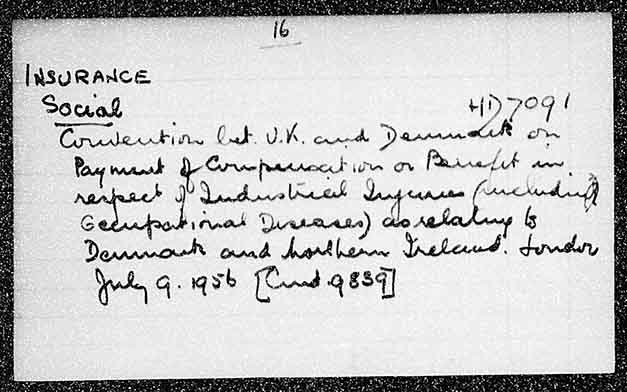 16
INSURANCE
Social
HD7091
Convention bet. U.K. and Denmark on
Payment of Compensation or Benefit in
respect of Industrial Injuries (including
Occupational Diseases) as relating to
Denmark and Northern Ireland. London
July 9. 1956 [Cmd. 9839]